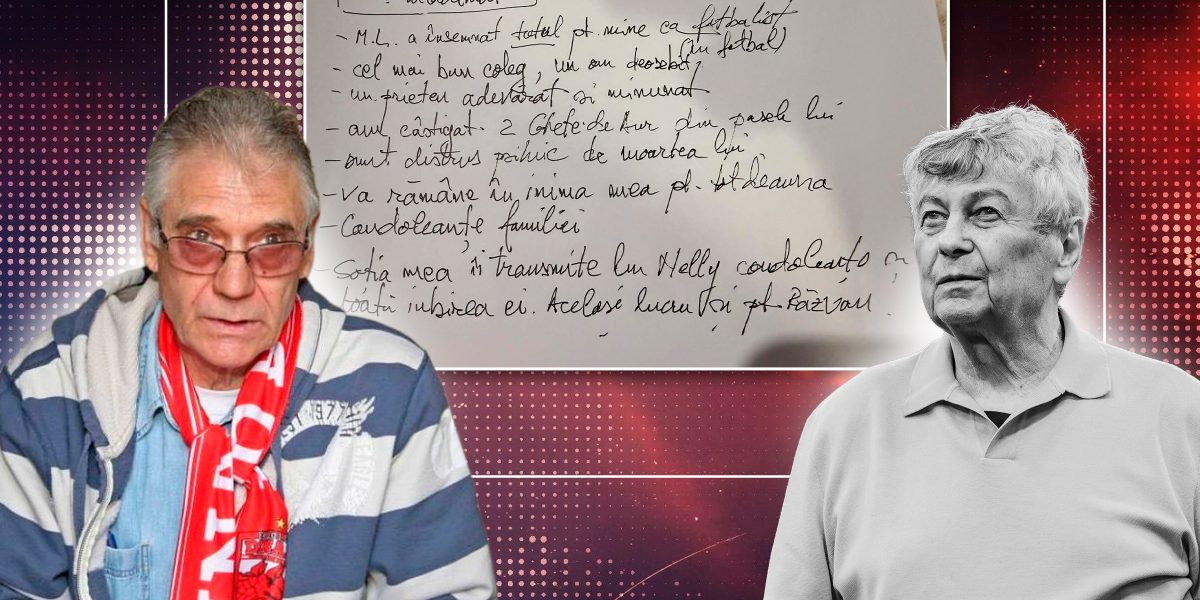 - M.L. a însemnat totul pt. mine ca fotbalist
(în fotbal)
- cel mai bun coleg, un om deosebit,
- un prieten adevărat și minunat
- am câștigat 2 Ghete de Aur din pasele lui
- sunt distrus psihic de moartea lui
- Va rămâne în inima mea pt. totdeauna
- Condoleanțe familiei
- Soția mea îi transmite lui Nelly condoleanțe cu
toată iubirea ei. Același lucru și pt Răzvan.